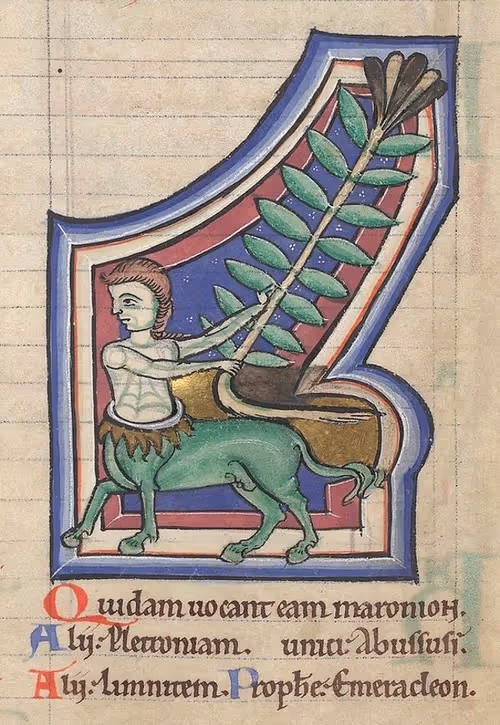 Quidam uocant eam maronion.
Alij: unici: Abussusi:
Alij: limnitem. Prophe: Emeracleon.